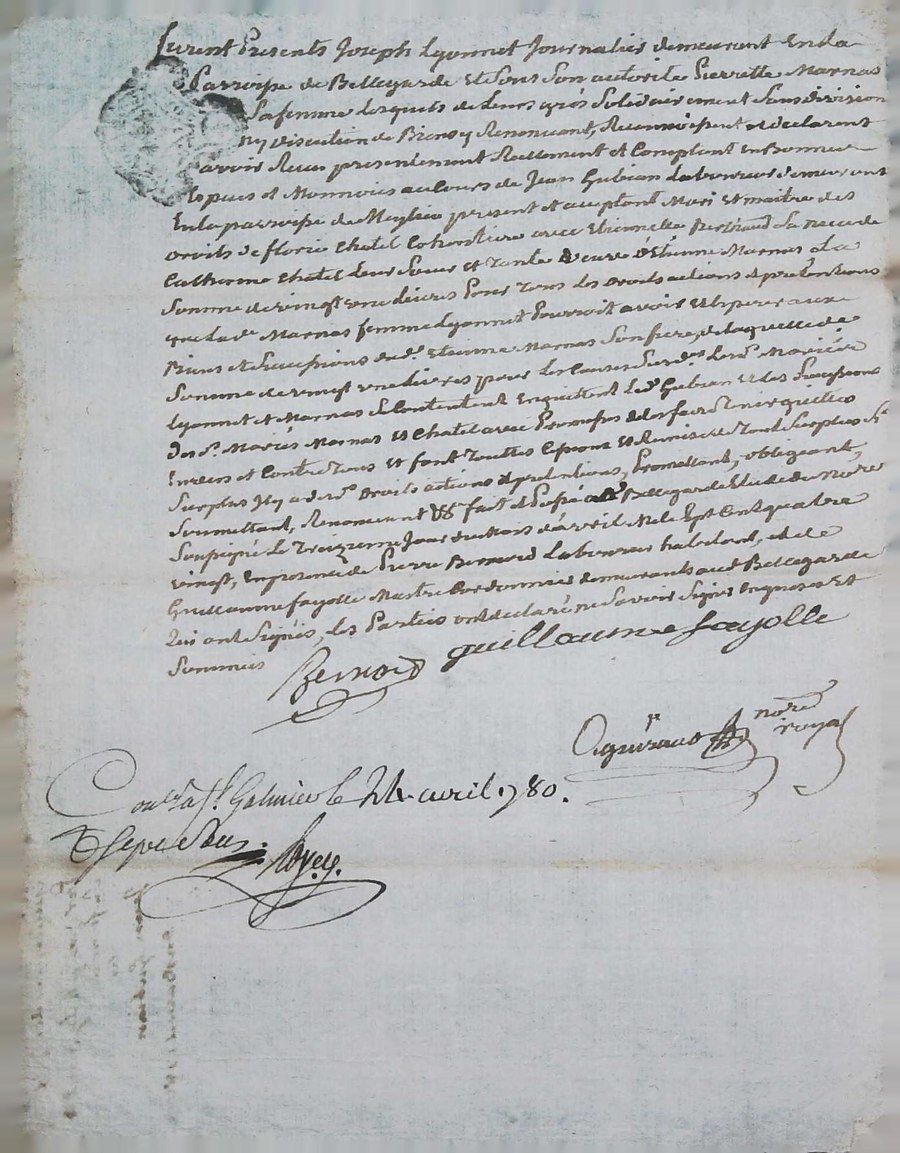 furent Presents Joseph Lyonnet Journalier demeurant En la
Parroisse de Bellegarde Et Sous Son autorité Pierrette Marnas
Sa femme Lesquels de Leurs grés Solidairement Sans division
ny discution de Biens y Renoncant, Reconnoissent et declarent
avoir Recus presentement Reellement et Comptant en Bonnes
Espèces et Monnoies au Cours de Jean Gubian Laboureur demeurant
En la parroisse de present et acceptant Mari Et maitre des
droits de florie Chatel Cohéritière avec Etiennette Bertrand La de
Catherine Chatel Leur Soeur et Tante d'Etienne Marnas La
Somme de vingt une Livres Pour Tous Les Droits actions et prétentions
que lade. Marnas femme Lyonnet Pourroit avoir et Esperer aux
Biens et Successions dud. Etienne Marnas Son frere, de laquelle de
Somme de vingt une Livres pour les Causes Susdes. Lesd. Mariés
Lyonnet et Marnas Se Contentent En quittent Led. Gubian Et les Successions
desd. Mariés Marnas et Chatel avec Promesse de les faire tenir quittes
Envers et Contre Tous Et font Toutes
Surplus Droits actions et prétentions, Promettant, obligeant,
Soumettant, Renoncant &&. fait et Passé Bellegarde Etude du Notre
Soussigné Le Treizieme Jour du Mois d'avril Mil Sept Cent quatre
vingt, En presence de Pierre Bernard Laboureur habitant, et de
Guillaume fayolle Maitre Cordonnier demeurants aud. Bellegarde
Qui ont Signés, Les Parties ont déclaré ne Savoir Signer Enquises Et
Sommées
Bernard guillaume fayolle
notre
royal
Conlé a St. Galmier le 24 avril 1780.